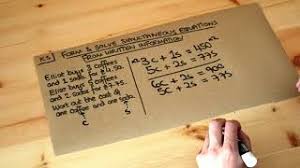 Form & Solve Simultaneous Equations
From Written Information
Elliot buys 3 coffees
and 1 soda for £4.50.
Elliot buys 5 coffees
and 2 sodas for £7.75
Work out the cost of
one coffee and one soda.
C S
3c + 2s = 450
5c + 2s = 775
6c + 2s = 900
5c + 2s = 775